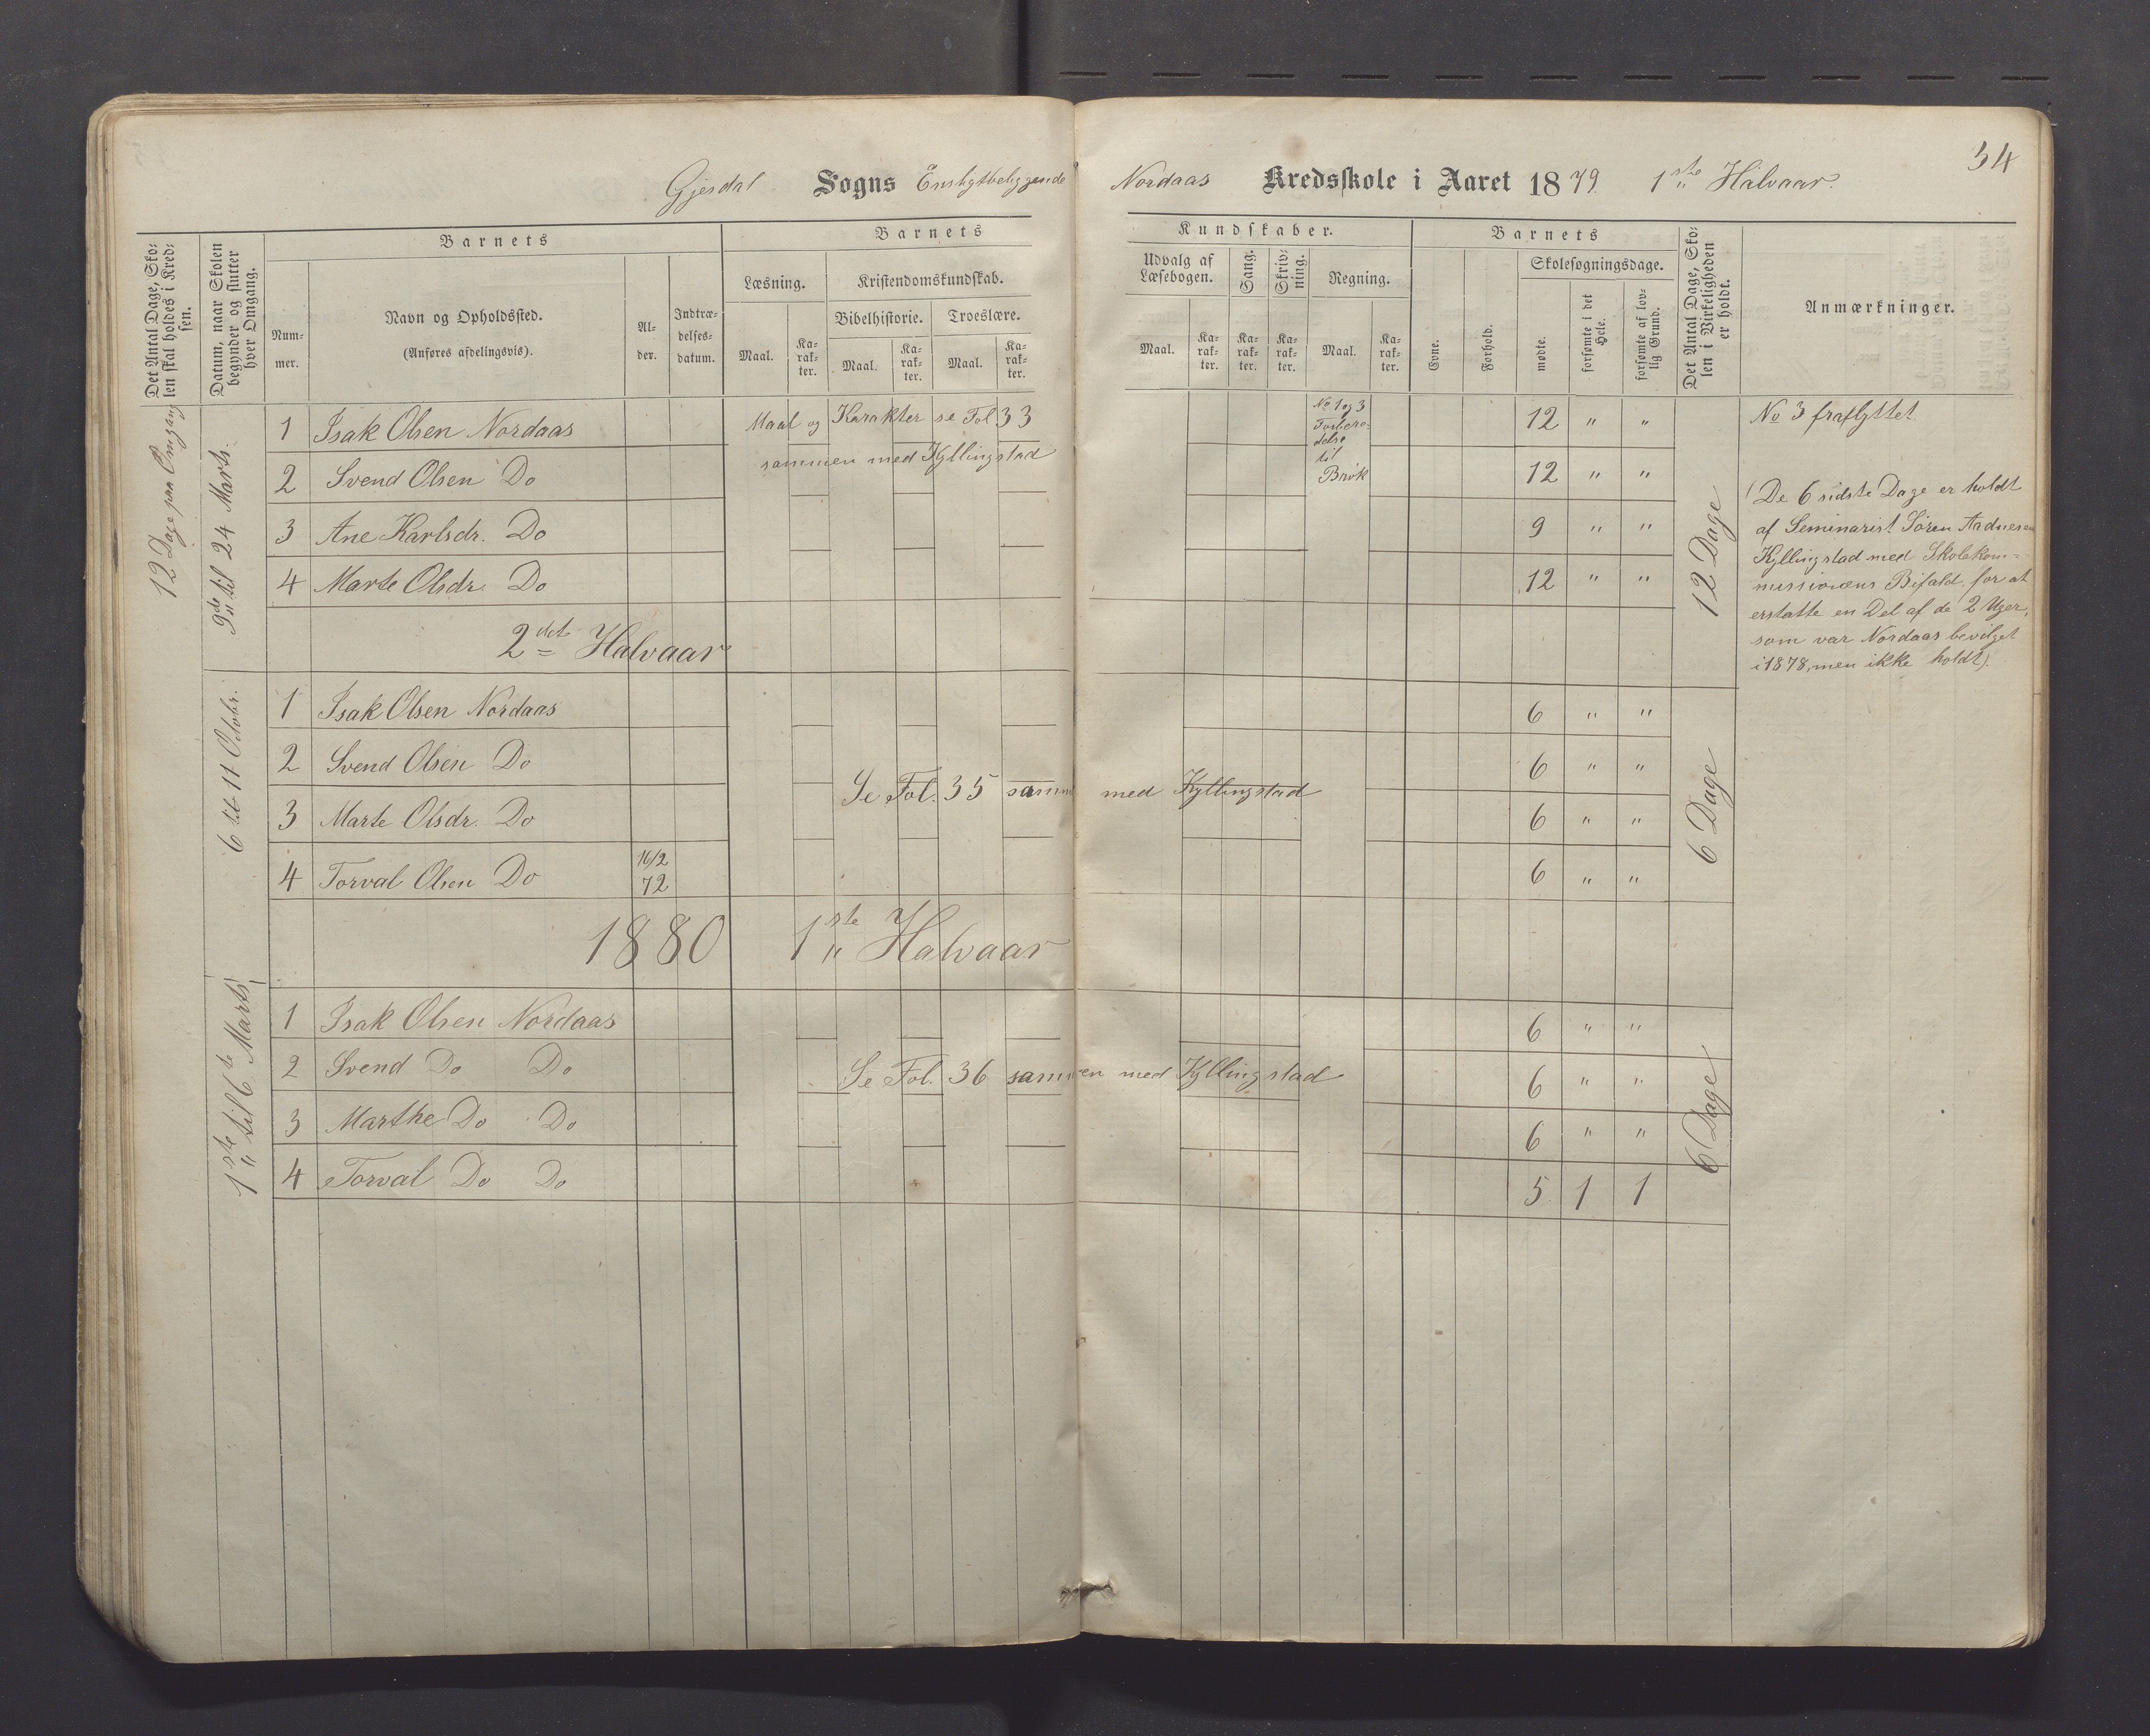 34
Gjesdal Sogns Ensligtbeliggende Nordaas Kredsskole i Aaret 1879. 1ste Halvaar.
Det Antal Dage, Sko-
len skal holdes i Kred-
sen.
Datum, naar Skolen
begynder og slutter
hver Omgang.
Barnets
Num-
mer.
Navn og Opholdssted.
(Anføres afdelingsvis).
Al-
der.
Indtræ-
delses-
datum.
Barnets Kundskaber.
Læsning.
Maal.
Ka-
rak-
ter.
Kristendomskundskab.
Bibelhistorie.
Maal.
Ka-
rak-
ter.
Troeslære.
Maal.
Ka-
rak-
ter.
Udvalg af
Læsebogen.
Maal.
Ka-
rak-
ter.
Sang.
Ka-
rak-
ter.
Skriv-
ning.
Ka-
rak-
ter.
Regning.
Maal.
Ka-
rak-
ter.
Barnets
Evne.
Forhold.
Skolesøgningsdage.
mødte.
forsømte i det
Hele.
forsømte af lov-
lig Grund.
Det Antal Dage, Sko-
len i Virkeligheden
er holdt.
Anmærkninger.
12 Dage paa Omgang
9de til 24 Marts.
1 Isak Olsen Nordaas Maal og Karakter se Fol 33 12 " "
2 Svend Olsen Do sammen med Kyllingstad 12 " "
3 Ane Karlsdr. Do 9 " "
4 Marte Olsdr. Do 12 " "
No 1 og 3
Forbere-
delse
til
Brøk
12 Dage
No 3 fraflyttet
(De 6 sidste Dage er holdt
af Seminarist Søren Aadnesen
Kyllingstad med Skolekom-
missionens Bifald, for at
erstatte en Del af de 2 Uger,
som var Nordaas bevilget
i 1878, men ikke holdt).
2det Halvaar
6 til 11 Octobr.
1 Isak Olsen Nordaas 6 " "
2 Svend Olsen Do 6 " "
Se Fol. 35 sammen med Kyllingstad
3 Marte Olsdr. Do 6 " "
4 Torval Olsen Do 16/2 72 6 " "
6 Dage
1880 1ste Halvaar
1ste til 6te Marts
1 Isak Olsen Nordaas 6 " "
2 Svend Do Do Se Fol. 36 sammen med Kyllingstad 6 " "
3 Marthe Do Do 6 " "
4 Torval Do Do 5 1 1
6 Dage